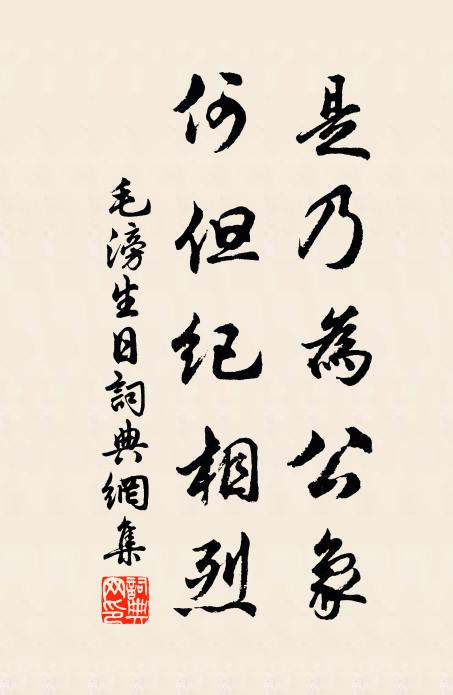 是乃為公象
何但纪相烈
毛滂生日詞典網集
詞典网印